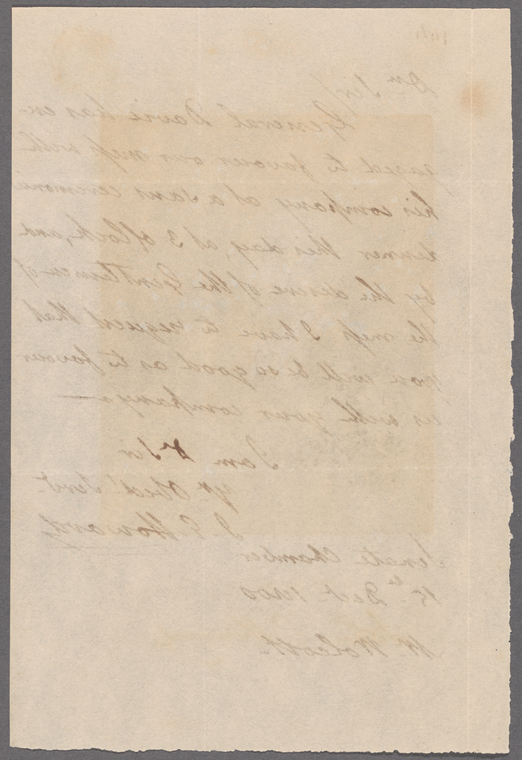 Dr Sir/
General Davie has en-
gaged to favour our mess with
his company at a sans ceremonie
dinner this day, at 3 oClock, and
by the desire of the Gentlemen of
the mess I have to request that
you will be so good as to favour
us with your company —
I am Dr Sir
Yr. Obedt. Servt.
J. E. Howard
Senate Chamber
Decr. 1800
Mr. Wolcott